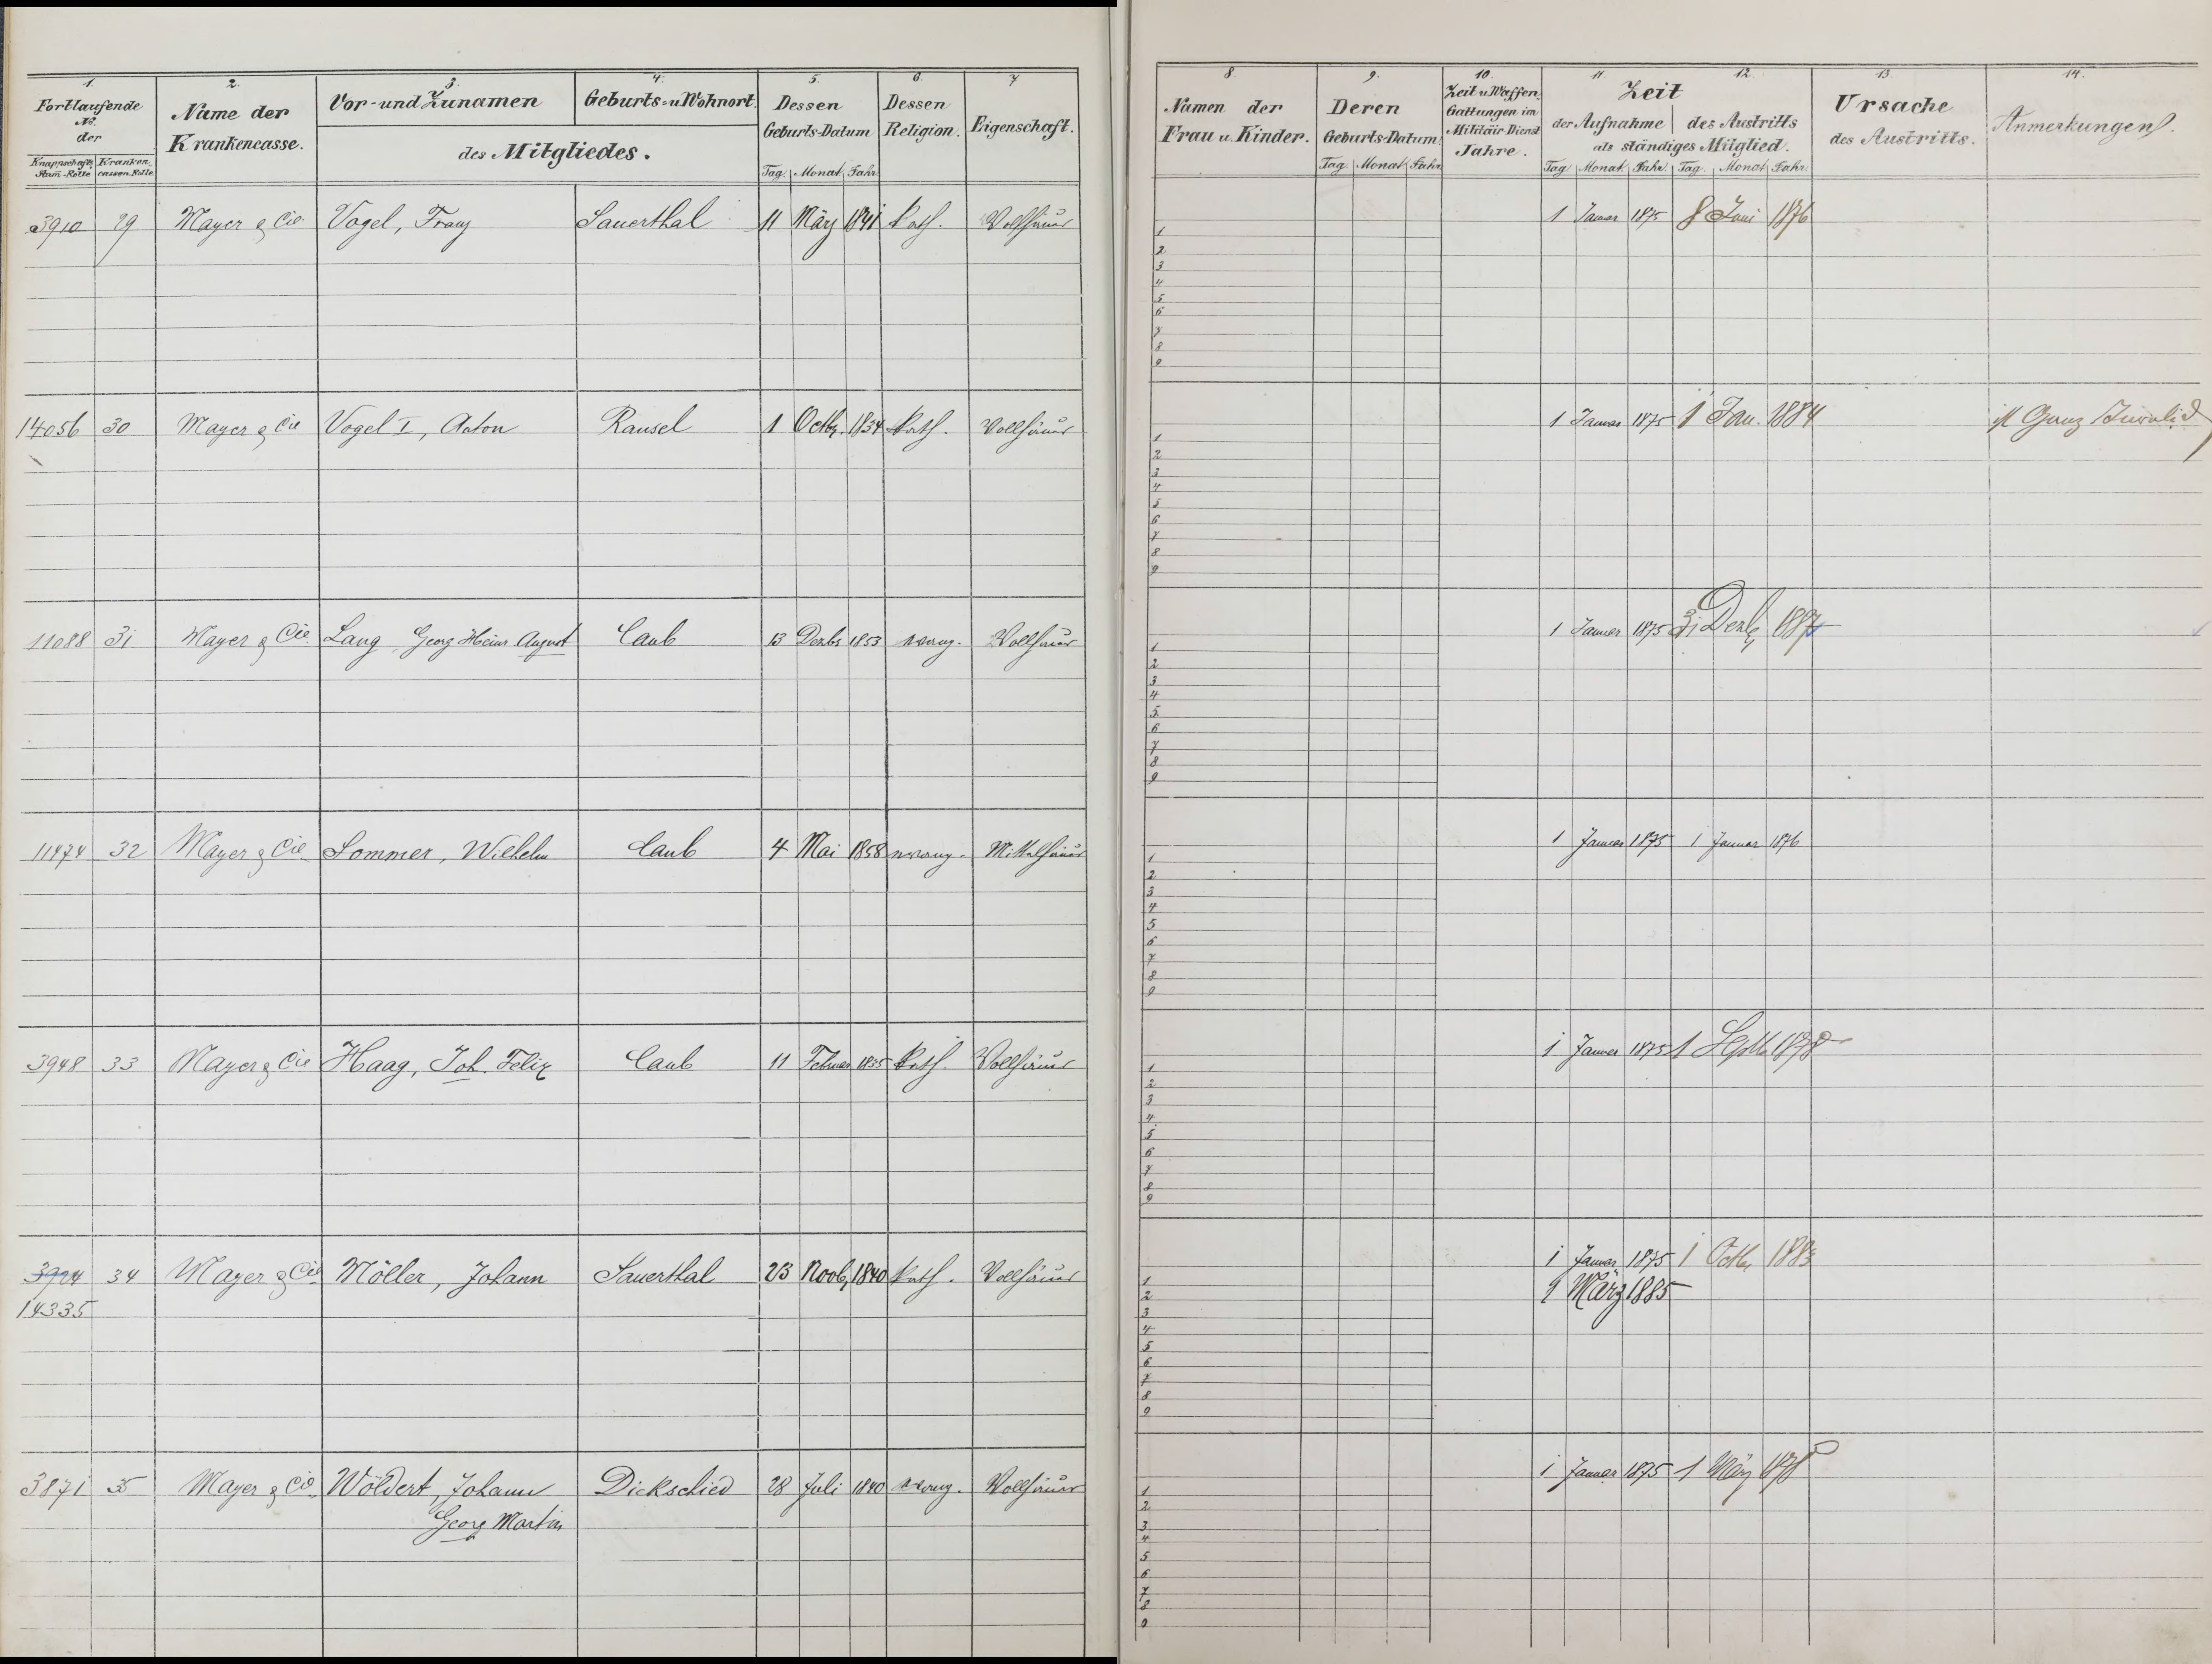 1. 2. 3. 4. 5. 6 7
Fortlaufende
No.
der
Knappschafts Stam-Rolle Kranken cassen-Rolle
Name der
Krankencasse.
Vor- und Zunamen Geburts- u. Wohnort
des Mitgliedes.
Dessen
Geburts-Datum
Tag. Monat Jahr.
Dessen
Religion.
Eigenschaft.
3910 29 Mayer & Cie Vogel, Franz Sauerthal 11 März 1841 kath. Vollhäuer
14056 30 Mayer & Cie Vogel I, Anton Ransel 1 Octbr. 1834 kath. Vollhäuer
11088 31 Mayer & Cie Lang Georg Heinr August Caub 13 Dezbr 1853 evang. Vollhäuer
11474 32 Mayer & Cie Sommer, Wilhelm Caub 4 Mai 1858 evang. Mittelhäuer
3948 33 Mayer & Cie Haag, Joh. Felix Caub 11 Februar 1835 kath. Vollhäuer
3924 34 Mayer & Cie Möller, Johann Sauerthal 23 Novb, 1840 kath. Vollhäuer
14335
3871 35 Mayer & Cie Wöldert, Johann Dickschied 28 Juli 1840 evang. Vollhäuer
Georg Martin
8. 9. 10. 11. 12. 13 14.
Namen der
Frau u. Kinder.
Deren
Geburts-Datum.
Tag. Monat Jahr
Zeit u. Waffen
Gattungen im
Militair-Dienst
Jahre.
Zeit
der Aufnahme des Austritts
als ständiges Mitglied.
Tag Monat. Jahr. Tag. Monat Jahr.
Ursache
des Austritts.
Anmerkungen.
1 Januar 1875 8 Juni 1876
1
2
3
4
5
6
7
8
9
1 Januar 1875 1 Jan. 1884 ist Ganz Invalid
1
2
3
4
5
6
7
8
9
1 Januar 1875 31 Dezb,
1
2
3
4
5
6
7
8
9
1 Januar 1875 1 Januar 1876
1
2
3
4
5
6
7
8
9
1 Januar 1875 1 Septb 1878
1
2
3
4
5
6
7
8
9
1 Januar 1875 1 Octb, 1883
1 März 1885
1
2
3
4
5
6
7
8
9
1 Januar 1875 1 März 1878
1
2
3
4
5
6
7
8
9